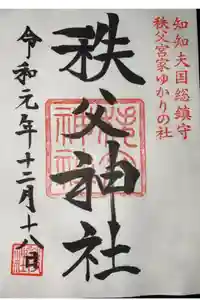 知知夫国総鎮守
秩父宮家ゆかりの社
秩父神社
令和元年十二月十八日